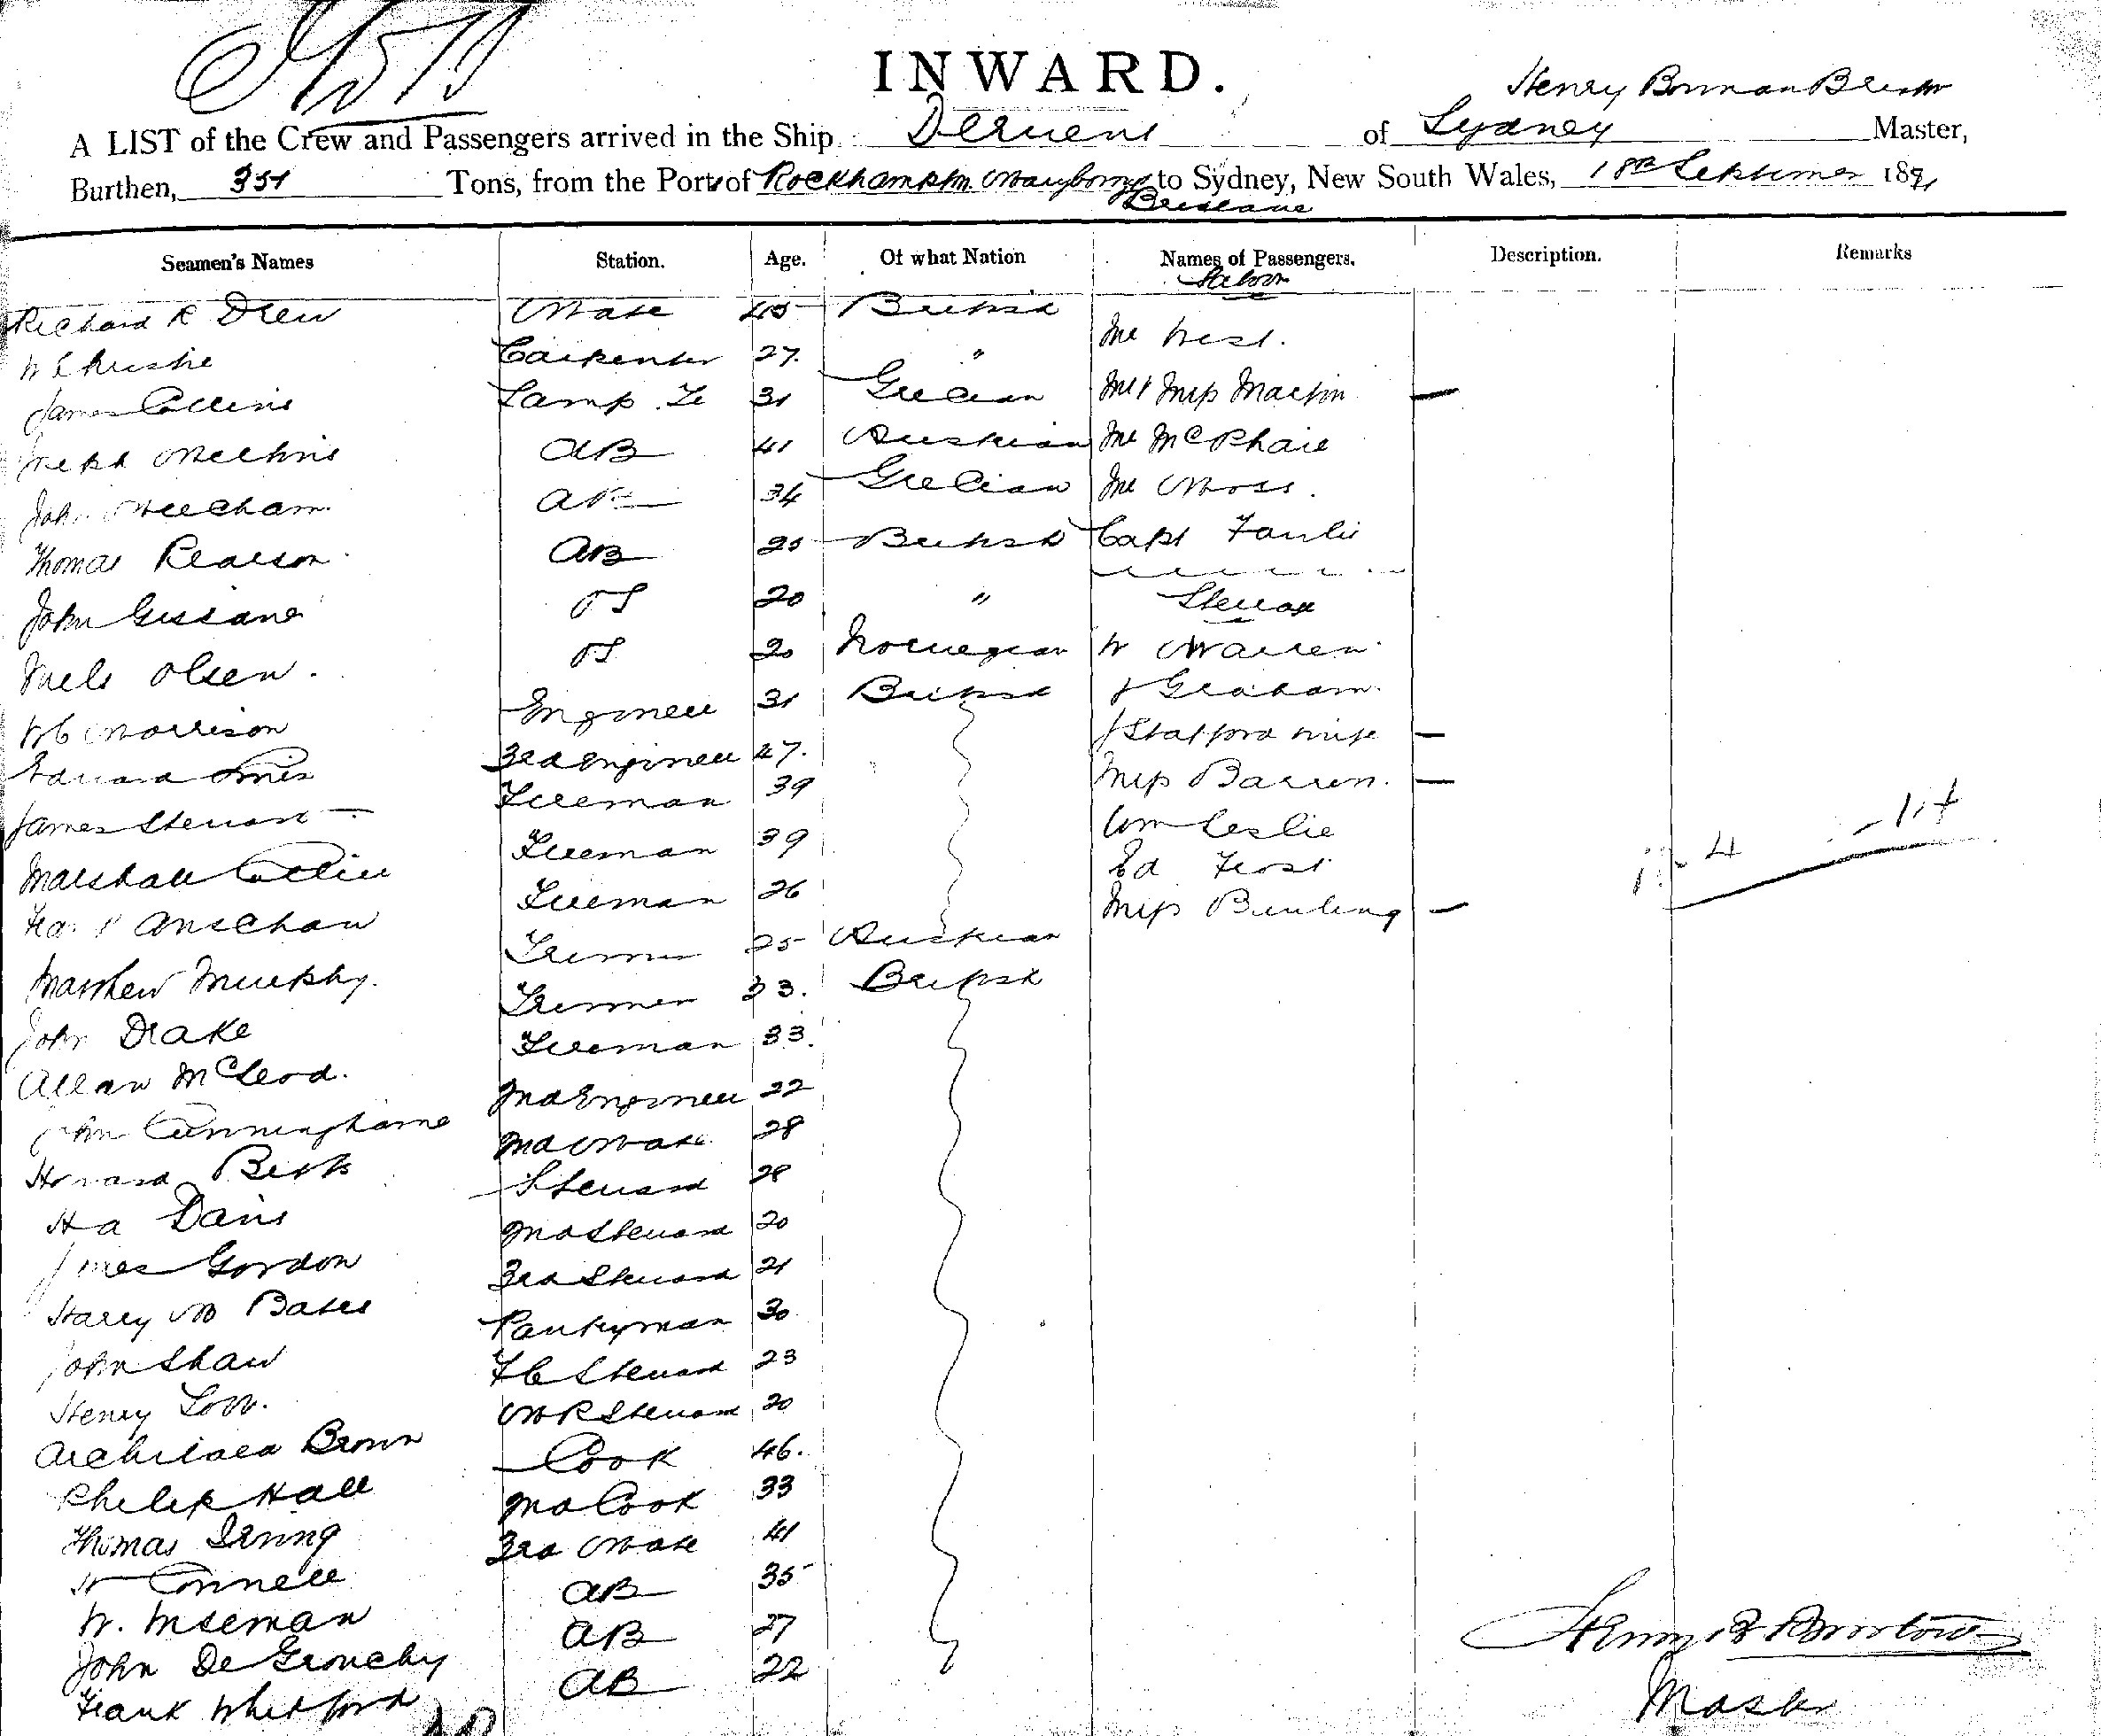 INWARD.
Henry
A LIST of the Crew and Passengers arrived in the Ship Derwent of Sydney Master,
Burthen, 351 Tons, from the Port of Rockhampton Maryboro to Sydney, New South Wales, 18th September 1891
Brisbane
Seamen's Names Station. Age. Of what Nation Names of Passengers. Description. Remarks
Saloon
Richard R Drew Mate 45 British
Mr West.
W Christie Carpenter 27. "
James Collins Lamp Tr 31 Grecian Mr & Miss Martin —
Joseph AB 41 Austrian Mr McPhail
John Meecham AB 34 Grecian Mr Moss.
Thomas Pearson AB 25 British Capt
John Gissane OS 20 " Steerage
Niels Olsen. OS 20 Norwegian W Warren
W C Morrison Engineer 31 British J Graham.
J Stafford wife —
Edward Jones 3rd Engineer 47. Miss Barren. —
James Stewart Fireman 39 Wm Leslie
Marshall Collier Fireman 39 Ed Frost
Fireman 26 Miss Bunting —
Trimmer 25 Austrian
Matthew Murphy. Trimmer 33. British
John Drake Fireman 33.
Allan McLeod. 2nd Engineer 22
John Cunninghame 2nd Mate 28
Howard Steward 28
H A Davis 2nd Steward 20
James Gordon 3rd Steward 21
Harry M Bates Pantryman 30
John Shaw F C Steward 23
Henry Low. M R Steward 20
Archibald Brown Cook 46.
Philip Hall 2nd Cook 33
Thomas Irving 3rd Mate 41
W Connell AB 35
W. AB 27
John De Grouchy AB 22
Frank Whitford
Henry B Bristow
Master